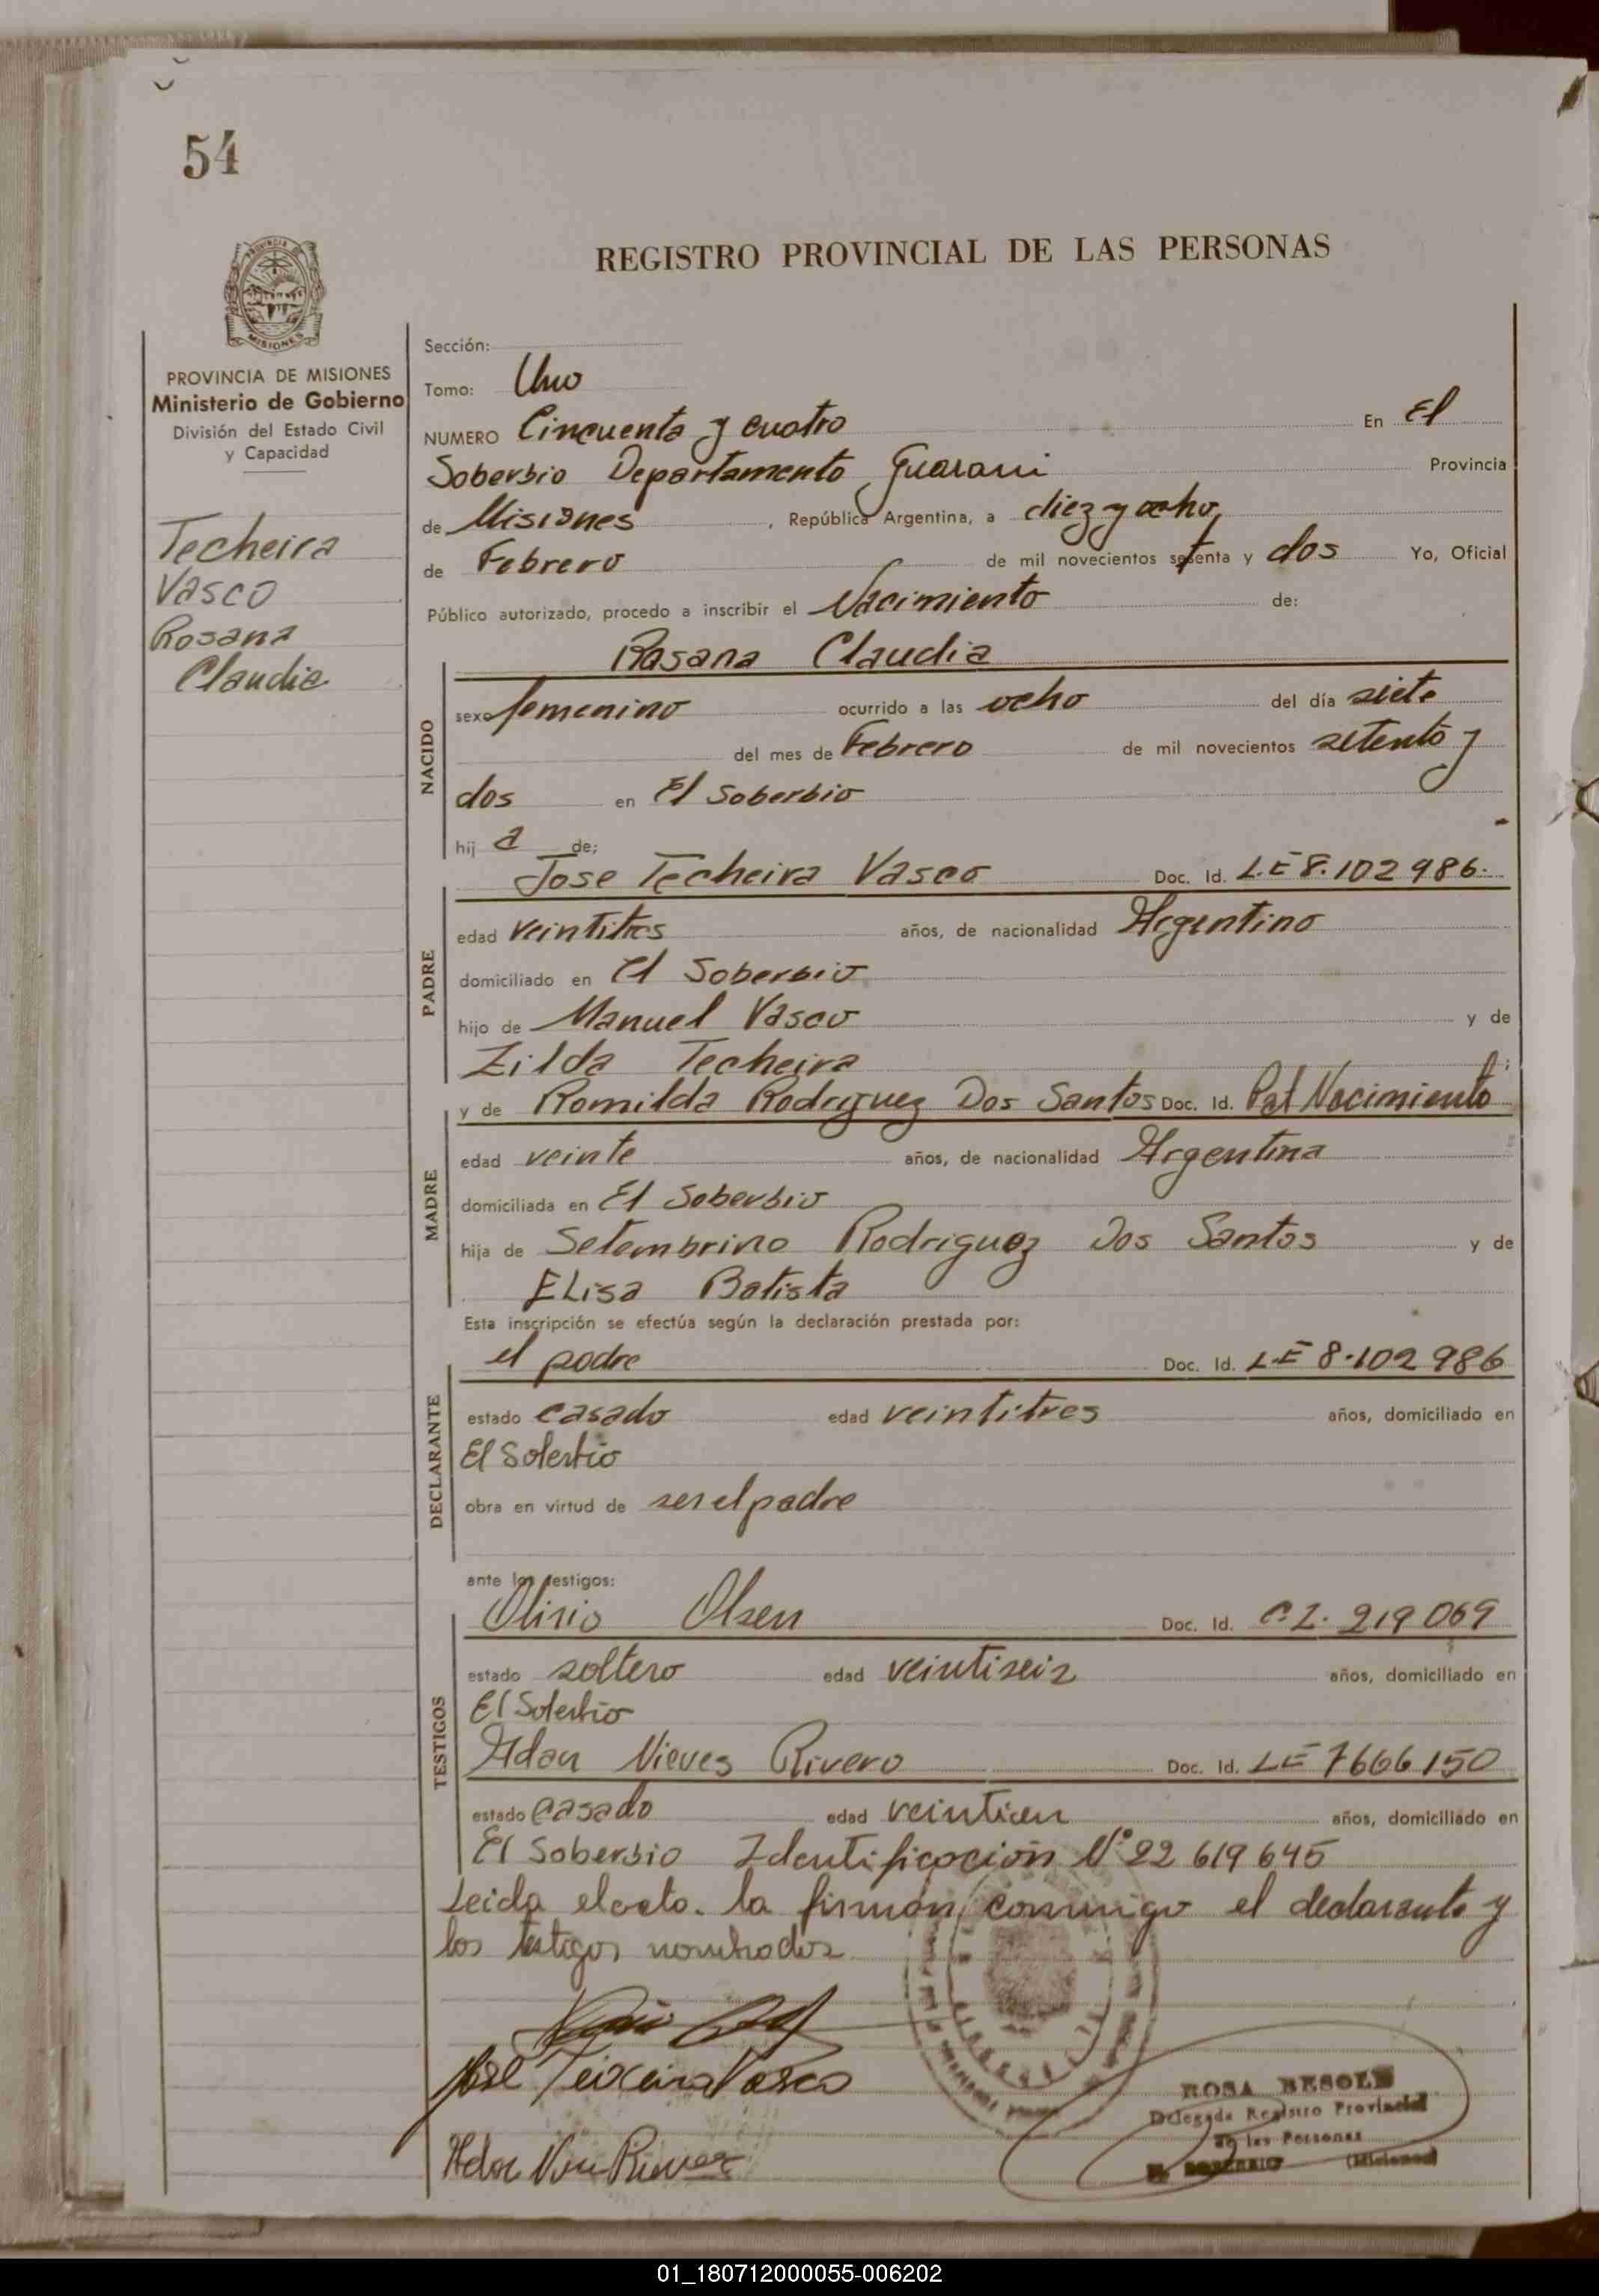 54
REGISTRO PROVINCIAL DE LAS PERSONAS
MISIONES
PROVINCIA DE MISIONES
Ministerio de Gobierno
División del Estado Civil
y Capacidad
Techeira
Vasco
Rosana
Claudia
Sección:
Tomo: Uno
NUMERO Cincuenta y cuatro En El
Soberbio Departamento Guarani Provincia
de Misiones, República Argentina, a diez y ocho,
de Febrero de mil novecientos setenta y dos Yo, Oficial
Público autorizado, procedo a inscribir el Nacimiento de:
Rosana Claudia
NACIDO
sexo femenino ocurrido a las ocho del día siete
del mes de Febrero de mil novecientos setenta y
dos en El Soberbio
hij a de;
Jose Techeira Vasco Doc. Id. L.E 8.102986.
PADRE
edad veintitres años, de nacionalidad Argentino
domiciliado en El Soberbio
hijo de Manuel Vasco y de
Zilda Techeira;
y de Romilda Rodriguez Dos Santos Doc. Id. Nacimiento
MADRE
edad veinte años, de nacionalidad Argentina
domiciliada en El Soberbio
hija de Setembrino Rodriguez Dos Santos y de
Elisa Batista
Esta inscripción se efectúa según la declaración prestada por:
el padre Doc. Id. L.E 8.102986
DECLARANTE
estado casado edad veintitres años, domiciliado en
El Soberbio
obra en virtud de ser el padre
ante los testigos:
Olirio Olsen Doc. Id. 219069
TESTIGOS
estado soltero edad veintiseis años, domiciliado en
El Soberbio
Adan Nieves Rivero Doc. Id. LE 7666150
estado casado edad años, domiciliado en
El Soberbio Identificación Nº 22619645
Leida el acta. la firman conmigo el declarante y
los testigos nombrados
José Teixeira Vasco
ROSA
Delegada Registro Provincial
de las Personas
EL SOBERBIO (Misiones)
01_180712000055-006202